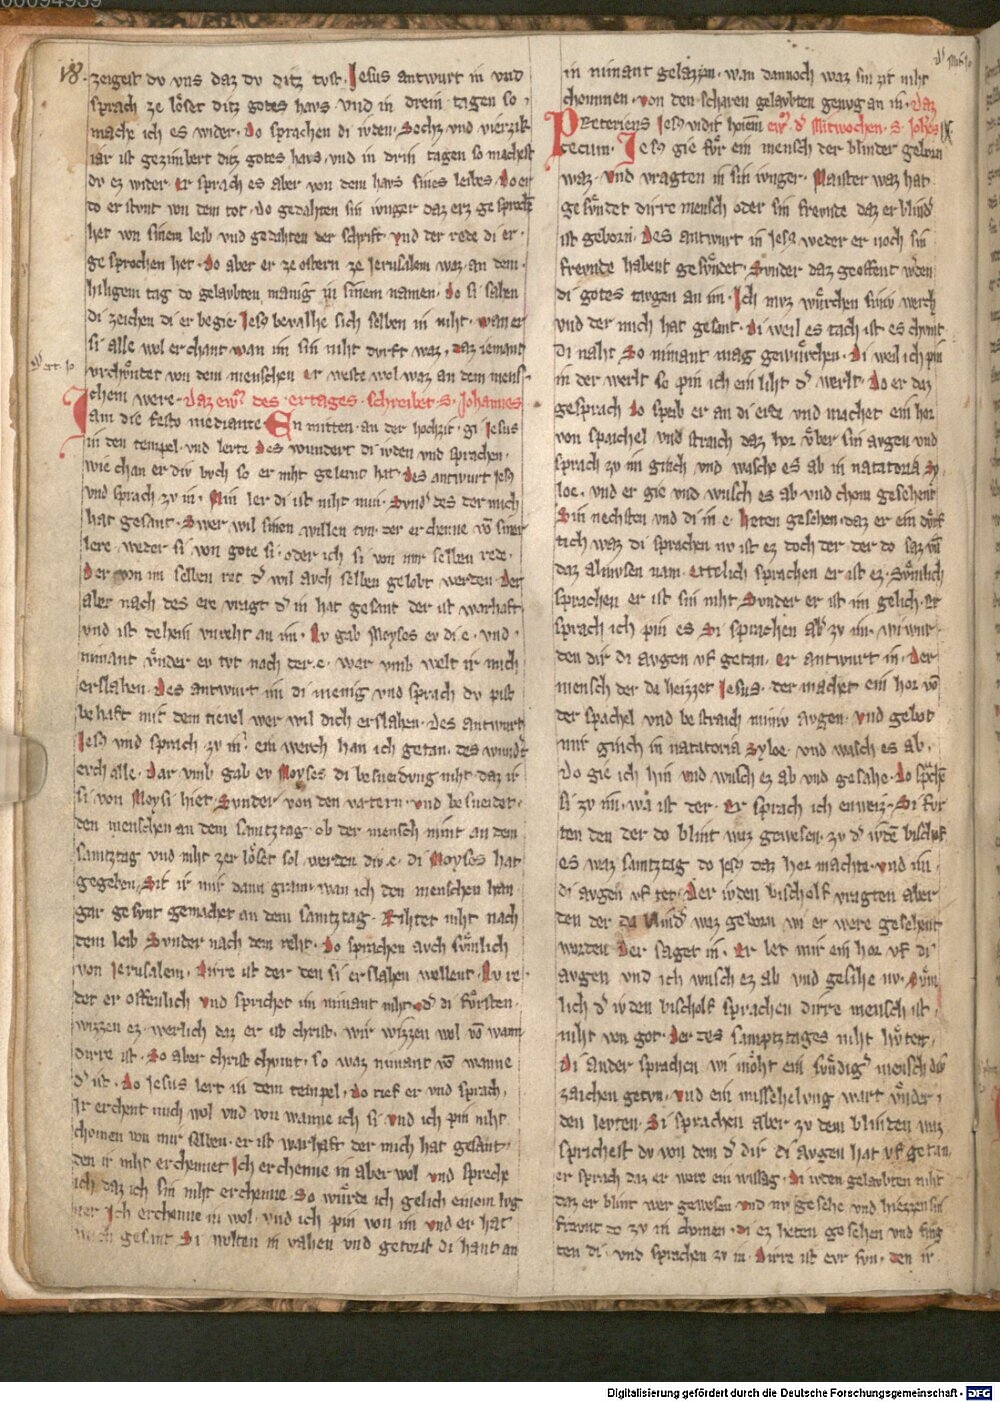 18.
zeigest dv vns daz dv ditz tvst. Jesus antwurt in vnd
sprach ze löset ditz gotes havs vnd in drein tagen so
mache ich es wider. Do sprachen di ivden. Sechz vnd vierzik
iar ist gezimbert ditz gotes havs, vnd in drin tagen so machest
dv ez wider. Er sprach es aber von dem havs sines leibes. Do er
do er stvnt von dem tot. do gedahten sin ivnger daz erz gesprochē
het von sinem leib vnd gedahten der schrift. vnd der rede di er.
gesprochen het. Do aber er ze ostern ze Jerusalem waz an dem.
hiligem tag do gelavbten manig in sinem namen. do si sahen
di zeichen di er begie. Jesꝰ bevalhe sich selben in niht. wan er
si alle wol erchant. wan im sin niht durft waz, daz iemant
vrchvndet von dem menschen er weste wol waz an dem mens
chem were. daz ewꝰ des ertages schreibet s. Johannes
Jam die festo mediante En mitten an der hochzit. gi Jesus
in den tempel. vnd lerte des wundert di ivden vnd sprachen.
wie chan er div bvch so er niht gelernt hat. des antwurt Jesꝰ
vnd sprach zv in. Min ler di ist niht min. Svndꝰ des der mich
hat gesant. Swer wil sinen willen tvn. der erchenne vō siner
lere. weder si von gote si. oder ich si von mir selben rede.
Der von im selben ret dꝰ wil avch selben gelobt werden. Der
aber nach des ere vragt dꝰ in hat gesant der ist warhaft
vnd ist dehein vnreht an im. Nv gab Moyses ev di e. vnd.
nimant vnder ev tvt nach der. e. war vmb welt ir mich
erslahen. Des antwurt im di menig vnd sprach dv pist
behaft mit dem tievel wer wil dich erslahen. des antwurt
Jesꝰ vnd sprach zv in. ein werch han ich getan. des wundꝰt
evch alle. Dar vmb gab ev Moyses di besneidvng niht daz ir
si von Moysi hiet. Svnder von den vatern. vnd besneidet.
den menschen an dem samtztag. ob der mensch nimt an dem
samtztag vnd niht zer löset sol werden div. e. di Moyses hat
gegeben. Sit ir mir dann gram. wan ich den menschen han
gar gesvnt gemachet an dem samtztag. Rihtet niht nach
dem leib Svnder nach dem reht. Do sprachen avch svmlich
von Jerusalem. Dirre ist der den si erslahen wellent. Nv re
det er offenlich vnd sprichet im nimant niht. odꝰ di fürsten.
wizzen ez. werlich daz er ist christ. wir wizzen wol vō wann
dirre ist. So aber christ chvmt. so waz nimant vō wanne
dꝰ ist. do Jesus lert in dem tempel. do rief er vnd sprach,
Ir erchent mich wol vnd von wanne ich si vnd ich pin niht
chomen von mir selben. er ist warhaft der mich hat gesant.
den ir niht erchennet Ich erchenne in aber wol vnd spreche
ich daz ich sin niht erchenne. So würde ich gelich einem lvg
ner Ich erchenne in wol. vnd ich pin von im vnd er hat
mich gesant. Si wolten in vahen vnd getorst di hant an
in nimant gelazzen. wan dannoch waz sin zit niht
chommen. von den scharen gelavbten genvg an in. daz
Preteriens Jesꝰ vidit hoiem ewꝰ dꝰ Mitwochen. S. Johēs IX.
cecum. Jesꝰ gie für ein mensch der blinder geborn
waz. Vnd vragten in sin ivnger. Maister waz hat
gesündet dirre mensch oder sin frevnde daz er blindꝰ
ist geborn. Des antwurt in Jesꝰ weder er noch sin
frevnde habent gesündet. Svnder daz geoffent wꝰden
di gotes tavgen an im. Ich mvz würchen siniv werch
vnd der mich hat gesant. di weil es tach ist es chvmt
di naht So nimant mag gewürchen. Di weil ich pin
in der werlt so pin ich ein liht dꝰ werlt. Do er daz
gesprach do speib er an di erde vnd machet ein hor
von spaichel vnd straich daz hor vber sin avgen vnd
sprach zv im ginch vnd wasche es ab in natatoria Sy
loe. vnd er gie vnd wusch es ab vnd chom gesehent
Sin nechsten vnd di in e heten gesehen. daz er ein dürf
tich waz di sprachen nv ist ez doch der der do saz vn̄
daz almvsen nam. ettelich sprachen er ist ez. Svmlich
sprachen er ist sin niht Svnder er ist im gelich. Er
sprach ich pin es Si sprachen abꝰ zv im. wi wur
den dir di avgen vf getan. Er antwurt in. Der
mensch der da heizzet Jesus. der machet ein hor vō
der spachel vnd bestraich miniv avgen. vnd gebot
mir ginch in natatoria Syloe. vnd wasch es ab.
do gie ich hin vnd wusch ez ab vnd gesahe. do sprachē
si zv im. wa ist der. Er sprach ich enweiz. Si fvr
ten den der do blint waz gewesen. zv dꝰ ivdē bischof
es waz samtztag do Jesꝰ daz hor machte. vnd im.
di avgen vf tet. Der ivden bischolf vragten aber
den der da blindꝰ waz geborn wi er were gesehent
worden Der saget in. Er let mir ein hor vf di
avgen vnd ich wusch ez ab vnd gesihe nv. Svm
lich dꝰ ivden bischolf sprachen dirre mensch ist
niht von got. der des samptztages niht hvtet.
Di ander sprachen wi möht ein sündigꝰ mensch div
zaichen getvn. vnd ein missehelvng wart vnder.
den levten. Si sprachen aber zv dem blinden waz
sprichest dv von dem dꝰ dir di avgen hat vf getan.
er sprach daz er were ein wissag. Di ivden gelavbten niht
daz er blint wer gewesen vnd nv gesehe vnd hiezzen sin
frevnt do zv in chomen. di ez heten gesehen vnd frag
ten di. vnd sprachen zv in. Dirre ist evr svn. den ir
Digitalisierung gefördert durch die Deutsche Forschungsgemeinschaft - DFG